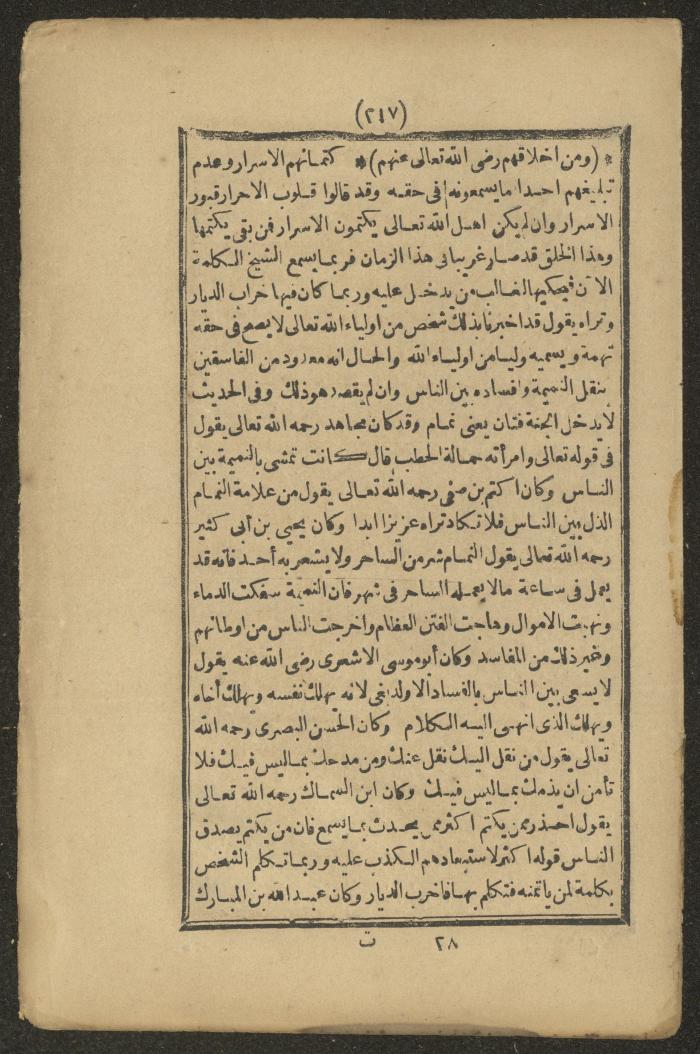 (٢١٧)
* (ومن اخلاقهم رضى الله تعالى عنهم) * كتمانهم الاسرار وعدم
تبليغهم احدا ما يسمعونه فى حقه وقد قالوا قلوب الاحرار قبور
الاسرار وان لم يكن اهل الله تعالى يكتمون الاسرار فمن بقى يكتمها
وهذا الخلق قد صار غريبا فى هذا الزمان فربما يسمع الشيخ الكلمة
الآن فيحكيها لغالب من يدخل عليه وربما كان فيها خراب الديار
وتراه يقول قد اخبرنا بذلك شخص من اولياء الله تعالى لا يصح فى حقه
تهمة ويسميه وليا من اولياء الله والحال انه معدود من الفاسقين
بنقل النميمة وافساده بين الناس وان لم يقصد هو ذلك وفى الحديث
لا يدخل الجنة فتان يعنى نمام وقد كان مجاهد رحمه الله تعالى يقول
فى قوله تعالى وامرأته حمالة الحطب قال كانت تمشى بالنميمة بين
الناس وكان اكتم بن صيفى رحمه الله تعالى يقول من علامة النمام
الذل بين الناس فلا تكاد تراه عزيزا ابدا وكان يحيى بن أبى كثير
رحمه الله تعالى يقول النمام شر من الساحر ولا يشعر به أحد فانه قد
يعمل فى ساعة مالا يعمله الساحر فى شهر فان النميمة سفكت الدماء
ونهبت الاموال وهاجت الفتن العظام واخرجت الناس من اوطانهم
وغير ذلك من المفاسد وكان أبو موسى الاشعرى رضى الله عنه يقول
لا يسعى بين الناس بالفساد الا ولد بغى لانه يهلك نفسه ويهلك أخاه
ويهلك الذى انهى اليه الكلام وكان الحسن البصرى رحمه الله
تعالى يقول من نقل اليك نقل عنك ومن مدحك بما ليس فيك فلا
تأمن ان يذمك بما ليس فيك وكان ابن السماك رحمه الله تعالى
يقول احذر ممن يكتم اكثر ممن يحدث بما يسمع فان من يكتم يصدق
الناس قوله اكثر لاستبعادهم الكذب عليه وربما تكلم الشخص
بكلمة لمن يأتمنه فتكلم بها فاخرب الديار وكان عبد الله بن المبارك
٢٨ ت